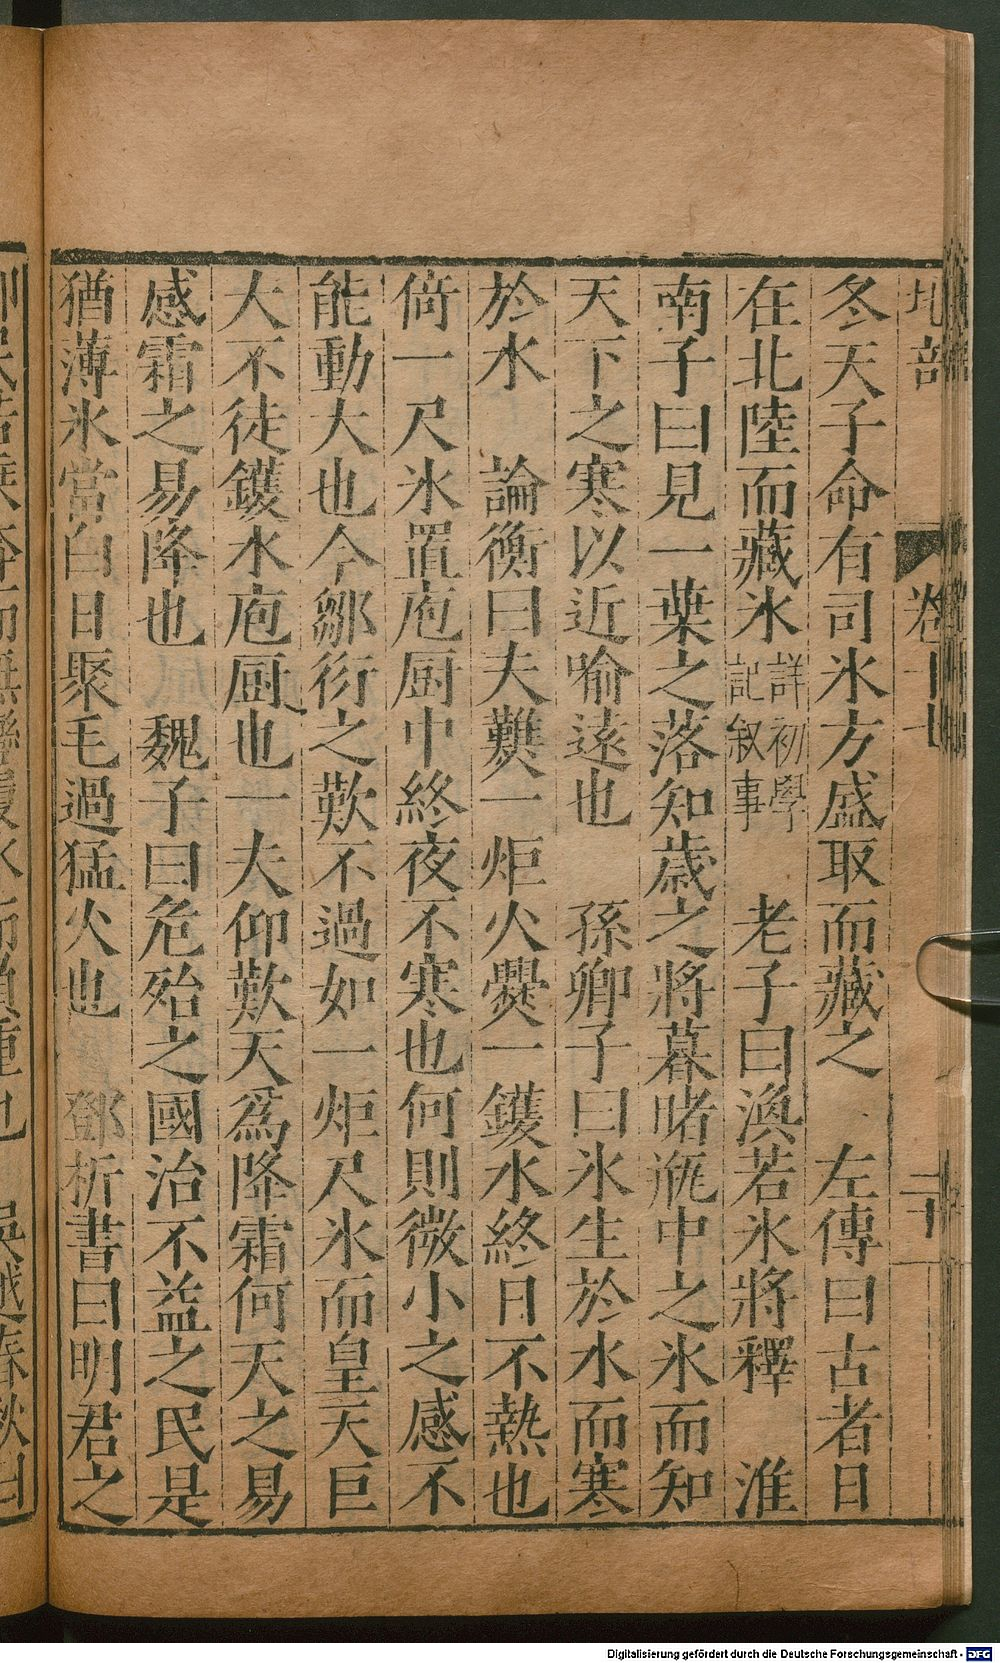 地部 卷十七 二十
冬天子命有司氷方盛取而藏之 左傳曰古者日
在北陸而藏氷詳初學記叙事 老子曰渙若氷將釋 淮
南子曰見一葉之落知歲之將暮睹瓶中之氷而知
天下之寒以近喻遠也 孫卿子曰氷生於水而寒
於水 論衡曰夫難一炬火爨一鑊水終日不熱也
倚一尺氷置庖厨中終夜不寒也何則微小之感不
能動大也今鄒衍之歎不過如一炬尺氷而皇天巨
大不徒鑊水庖厨也一夫仰歎天爲降霜何天之易
感霜之易降也 魏子曰危殆之國治不益之民是
猶薄氷當白日聚毛過猛火也 鄧析書曰明君之
Digitalisierung gefördert durch die Deutsche Forschungsgemeinschaft - DFG